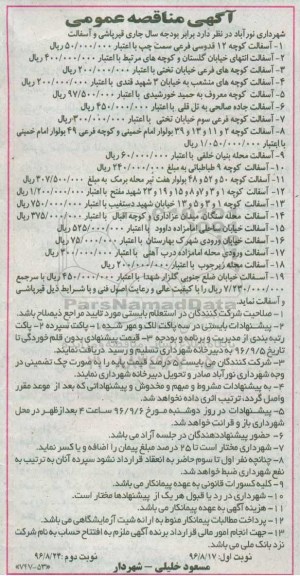 آگهی مناقصه عمومی
شهرداری نورآباد در نظر دارد برابر بودجه سال جاری قیرپاشی و آسفالت
۱- آسفالت کوچه ۱۲ فدوسی فرعی سمت چپ با اعتبار ۵۰/۰۰۰/۰۰۰ ریال
۲- آسفالت انتهای خیابان گلستان و کوچه های مرتبط با اعتبار ۴۰۰/۰۰۰/۰۰۰ ریال
۳- آسفالت کوچه های فرعی خیابان تختی با اعتبار ۲۰۰/۰۰۰/۰۰۰ ریال
۴- آسفالت کوچه های منشعب به خیابان ۳ شهید قندی با اعتبار ۲۰۰/۰۰۰/۰۰۰ ریال
۵- آسفالت کوچه معروف به حمید خورشیدی با اعتبار ۹۷/۵۰۰/۰۰۰ ریال
۶- آسفالت جاده صالحی به تل قلی با اعتبار ۴۵۰/۰۰۰/۰۰۰ ریال
۷- آسفالت کوچه فرعی سوم خیابان تختی با اعتبار ۳۰۰/۰۰۰/۰۰۰ ریال
۸- آسفالت کوچه ۲ و ۱۱ و ۱۳ و ۳۹ بولوار امام خمینی و کوچه فرعی ۴۹ بولوار امام خمینی با اعتبار ۱/۰۵۰/۰۰۰/۰۰۰ ریال
۹- آسفالت محله بنیان خلفی با اعتبار ۶۰/۰۰۰/۰۰۰ ریال
۱۰- آسفالت کوچه ۹ طباطبائی به مبلغ ۲۴۰/۰۰۰/۰۰۰ ریال
۱۱- آسفالت کوچه ۵۰ و ۵۲ و ۴۸ بولوار هفت تیر محله برمک به مبلغ ۴۰۷/۵۰۰/۰۰۰ ریال
۱۲- آسفالت کوچه ۱ و ۳ و ۷ و ۸ و ۱۵ و ۱۹ و ۲۳ شهید مفتح با اعتبار ۱/۲۰۰/۰۰۰/۰۰۰ ریال
۱۳- آسفالت کوچه ۱ و ۳ و ۵ و ۱۳ خیابان شهید دستغیب با اعتبار ۷۵۰/۰۰۰/۰۰۰ ریال
۱۴- آسفالت محله سنگان میدان عزاداری و کوچه اقبال با اعتبار ۳۷۵/۰۰۰/۰۰۰ ریال
۱۵- آسفالت خیابان ساحلی امامزاده داوود با اعتبار ۵۲۵/۰۰۰/۰۰۰ ریال
۱۶- آسفالت خیابان ورودی شهرک بهارستان با اعتبار ۷۵/۰۰۰/۰۰۰ ریال
۱۷- آسفالت ورودی محله امامزاده درب آهنی با اعتبار ۳۰۰/۰۰۰/۰۰۰ ریال
۱۸- آسفالت محله زیرچوب با اعتبار ۲۰۰/۰۰۰/۰۰۰ ریال
۱۹- آسفالت خیابان ضلع جنوبی گلزار شهدا با اعتبار ۴۵۰/۰۰۰/۰۰۰ ریال با سرجمع ۷/۲۳۰/۰۰۰/۰۰۰ ریال را با کیفیت عالی و رعایت اصول فنی و با شرایط ذیل قیرپاشی و آسفالت نماید.
۱- صلاحیت شرکت کنندگان در استعلام بایستی مورد تایید مراجع ذیصلاح باشد.
۲- پیشنهادات بایستی در سه پاکت لاک و مهر شده ۱- پاکت سپرده ۲- پاکت رتبه بندی از مدیریت و برنامه و بودجه ۳- قیمت پیشنهادی بدون قلم خوردگی تا تاریخ ۹۶/۹/۵ به دبیرخانه شهرداری تسلیم و رسید دریافت نمایند.
۳- شرکت کنندگان می بایست ۵ درصد قیمت پایه را به صورت چک تضمینی در وجه شهرداری نورآباد صادر و تحویل دبیرخانه شهرداری نمایند.
۴- به پیشنهادات مشروط و مبهم و مخدوش و پیشنهاداتی که بعد از موعد مقرر واصل گردد، ترتیب اثری داده نخواهد شد.
۵- پیشنهادات در روز دوشنبه مورخ ۹۶/۹/۶ ساعت ۴ بعد از ظهر در محل شهرداری باز و قرائت خواهد شد.
۶- حضور پیشنهاددهندگان در جلسه آزاد می باشد.
۷- شهرداری مختار است تا ۲۵ درصد مبلغ پیمان را اضافه و یا کسر نماید.
۸- چنانچه نفر اول تا سوم حاضر به انعقاد قرارداد نشود سپرده آنان به ترتیب به نفع شهرداری ضبط خواهد شد.
۹- کلیه کسورات قانونی به عهده پیمانکار می باشد.
۱۰- شهرداری در رد یا قبول هر یک از پیشنهادها مختار است.
۱۱- هزینه آگهی به عهده پیمانکار می باشد.
۱۲- پرداخت مطالبات پیمانکار منوط به ارائه شیت آزمایشگاهی می باشد.
۱۳- جهت انجام امور مالی قرارداد برنده آگهی ملزم به افتتاح حساب به نام شرکت نزد بانک ملی می باشد.
نوبت اول: ۹۶/۸/۱۷ نوبت دوم: ۹۶/۸/۲۴
مسعود خلیلی - شهردار
ParsNamadData